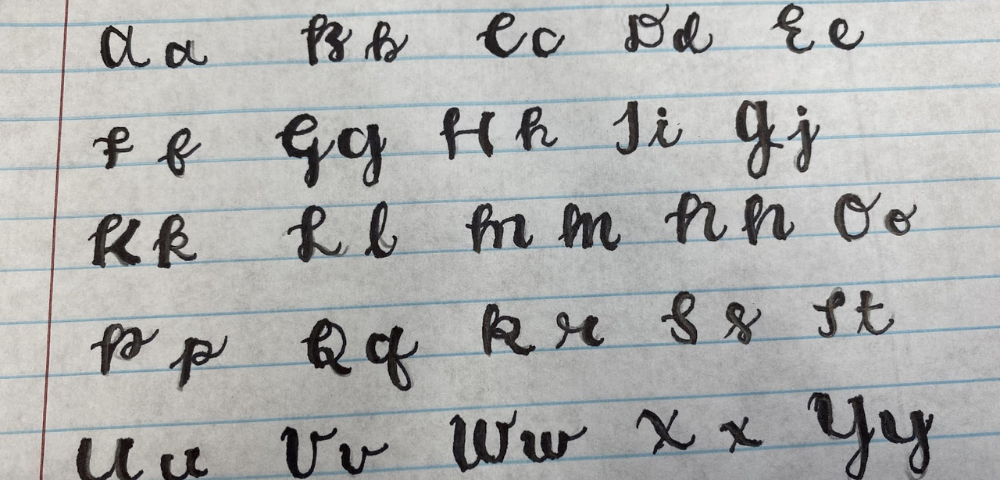 A a B b C c D d E e
F f G g H h I i J j
K k L l M m N n O o
P p Q q R r S s T t
U u V v W w X x Y y